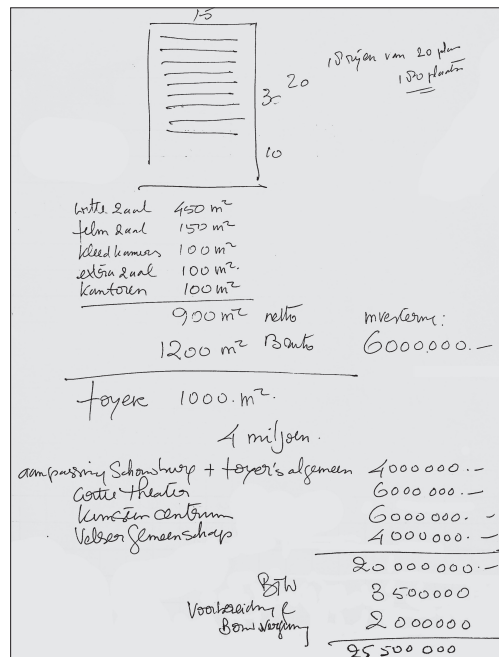 15
18 rijen van 20 plan
180 plaatsen
3- 20
10
witte zaal 450 m²
film zaal 150 m²
kleedkamers 100 m²
extra zaal 100 m².
kantoren 100 m²
900 m² netto investering:
1200 m² Bruto 6000.000.-
foyer 1000.m².
4 miljoen.
aanpassing Schouwburg + foyer's algemeen 4000000.-
witte theater 6000 000.-
kunsten centrum 6000 000.-
Velser Gemeenschap 4000000.-
20 000000.-
BTW 3 500000
Voorbereiding &
Bouw 2 000000
25 500 000